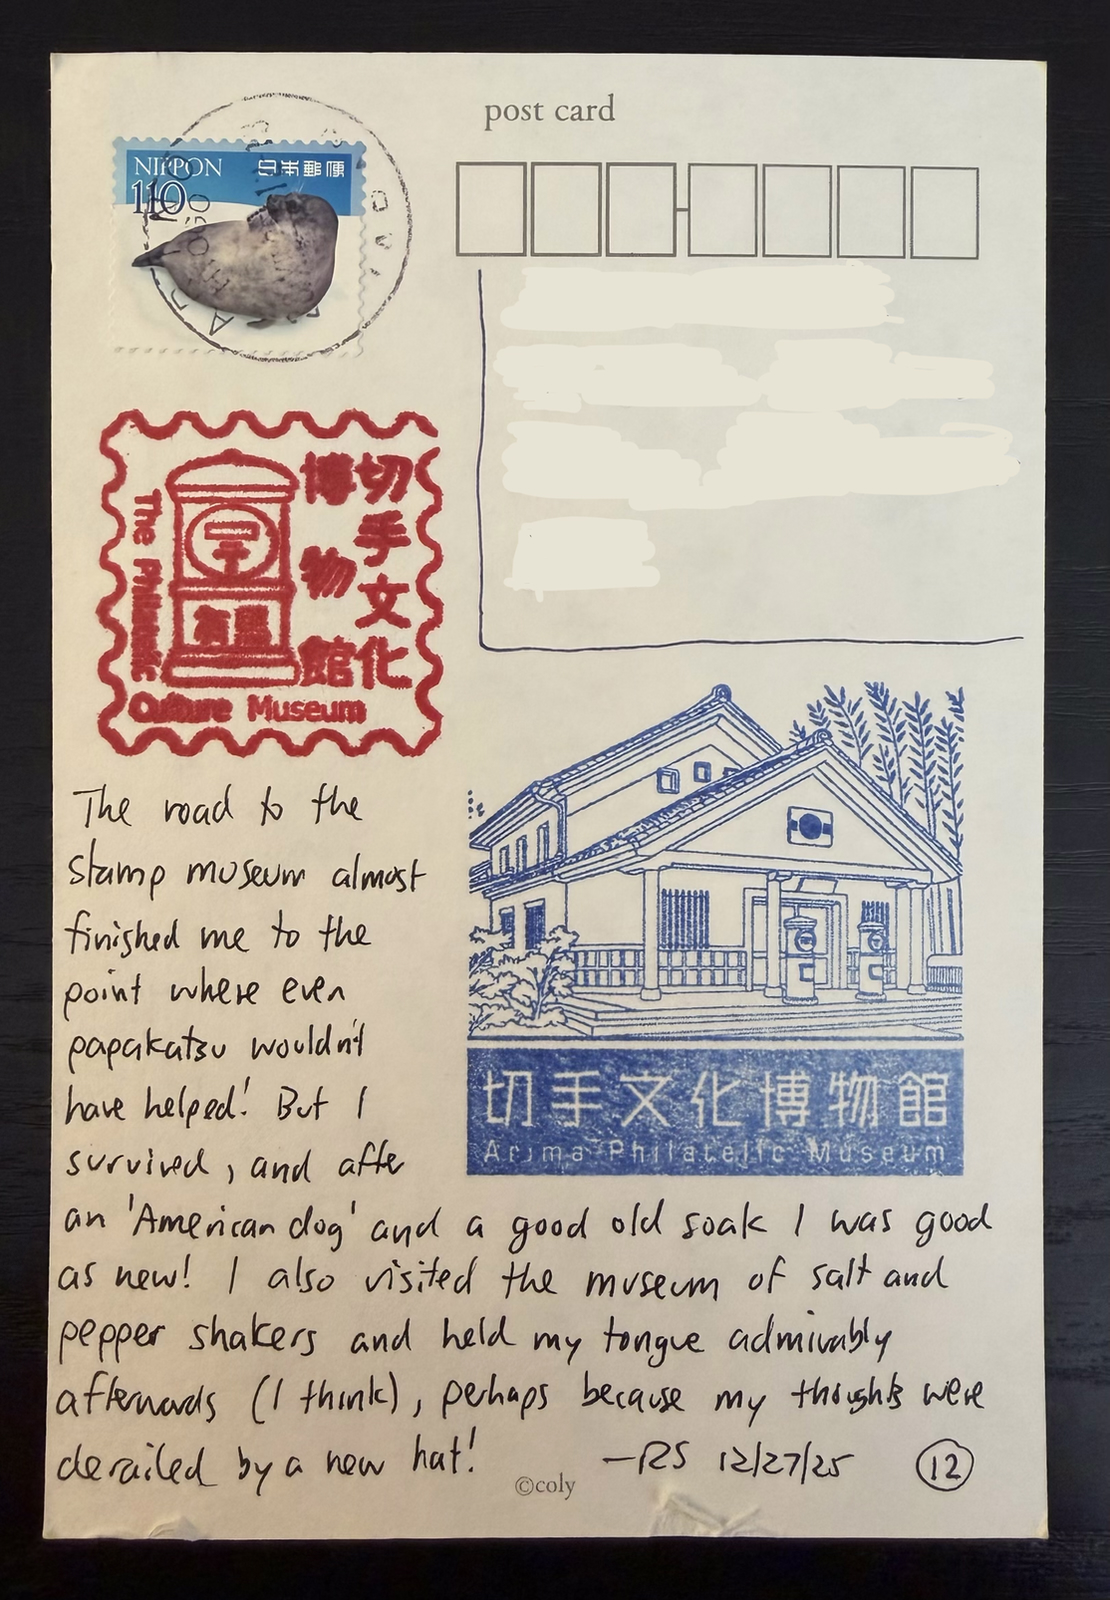 post card
NIPPON 日本郵便
110
切手文化
博物館
The Philatelic
Culture Museum
切手文化博物館
Arima Philatelic Museum
The road to the
stamp museum almost
finished me to the
point where even
papakatsu wouldn't
have helped! But I
survived, and after
an 'American dog' and a good old soak I was good
as new! I also visited the museum of salt and
pepper shakers and held my tongue admirably
afterwards (I think), perhaps because my thoughts were
derailed by a new hat! —RS 12/27/25 12
©coly